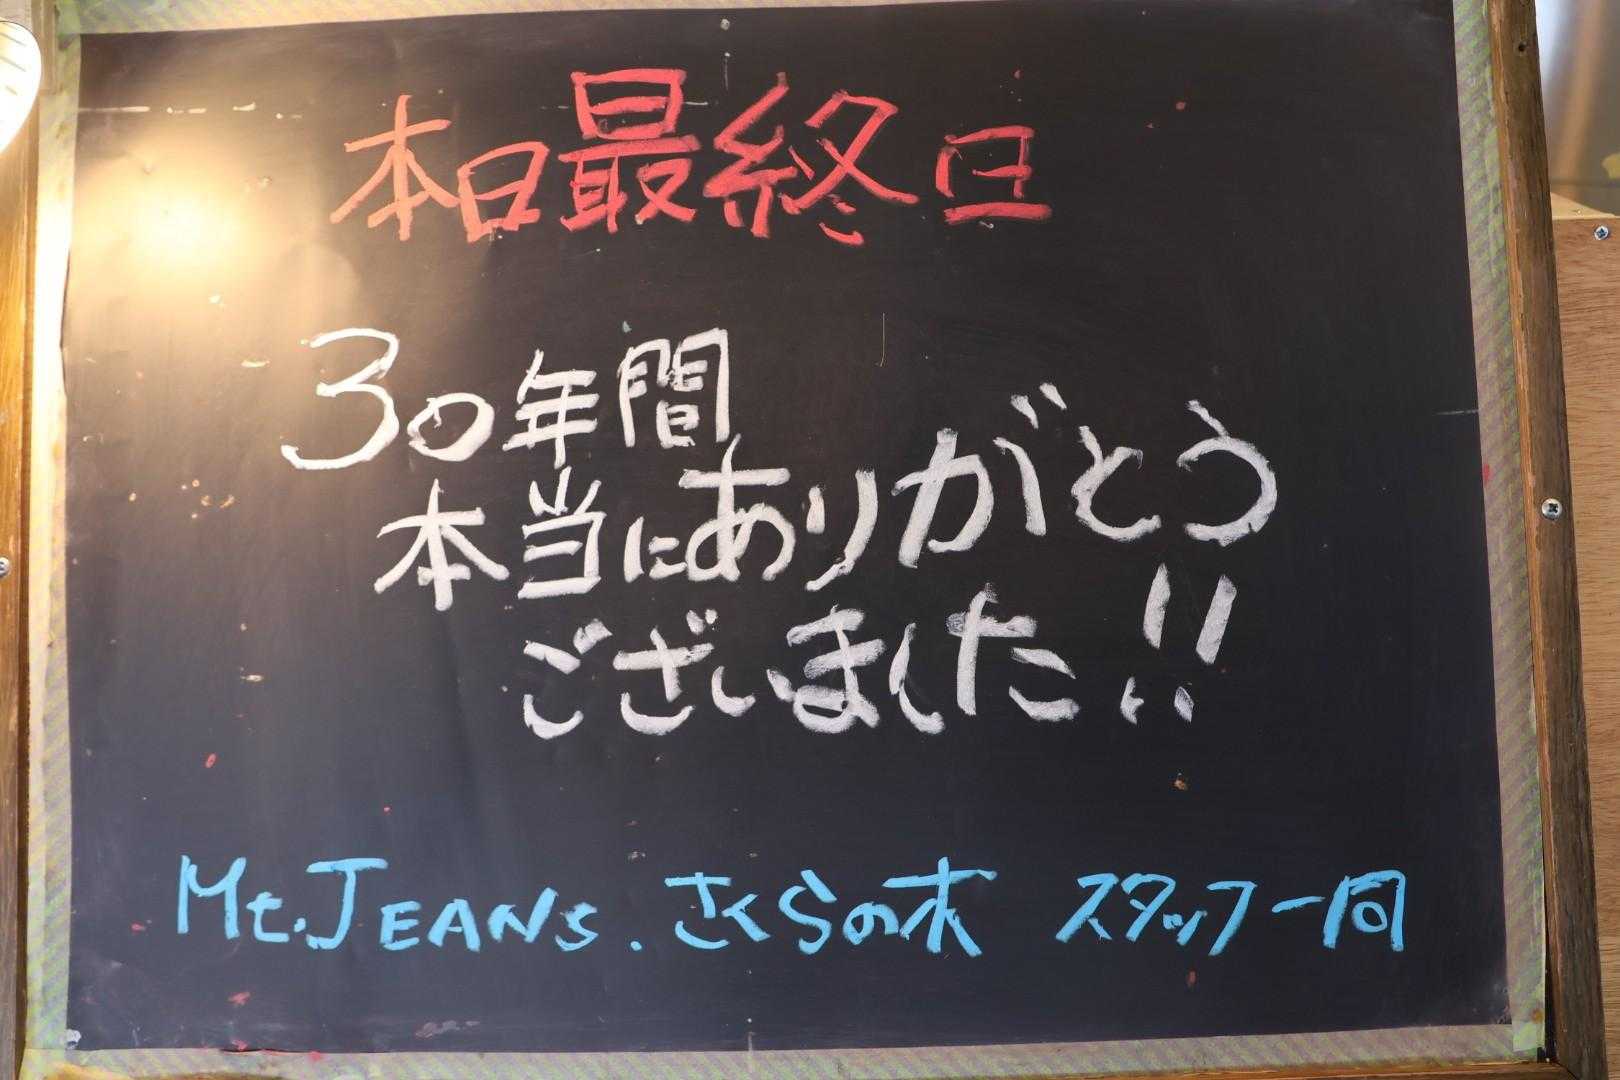 本日最終日
30年間
本当にありがとう
ございました!!
Mt.JEANS.さくらの木 スタッフ一同